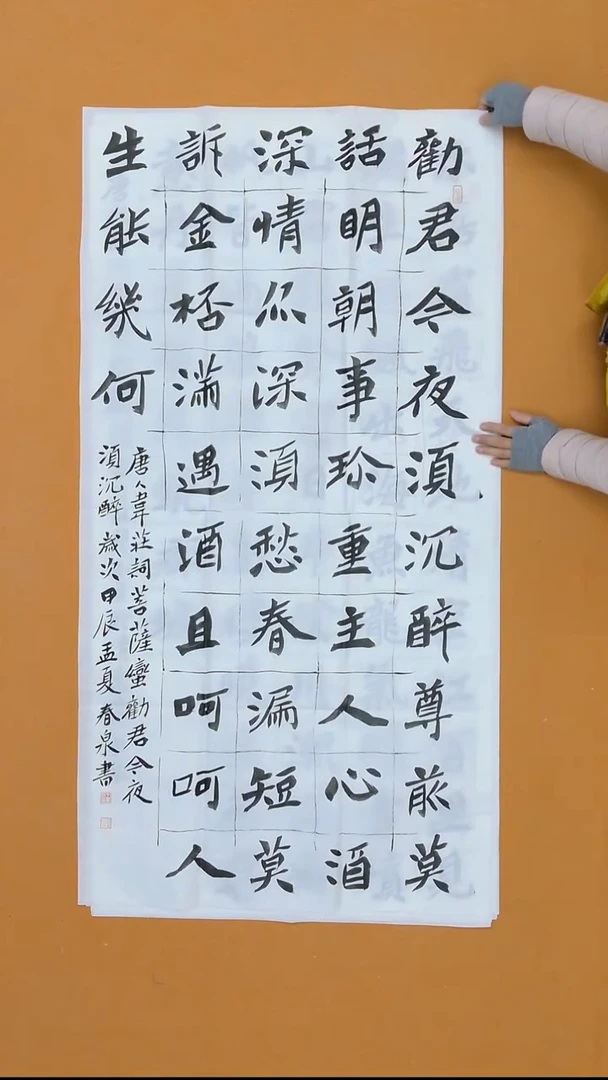 勸君今夜湏沉醉尊前莫
話明朝事珎重主人心酒
深情亦深湏愁春漏短莫
訴金桮滿遇酒且呵呵人
生能幾何
唐人韋莊詞菩薩蠻勸君今夜
湏沉醉歲次甲辰孟夏春泉書